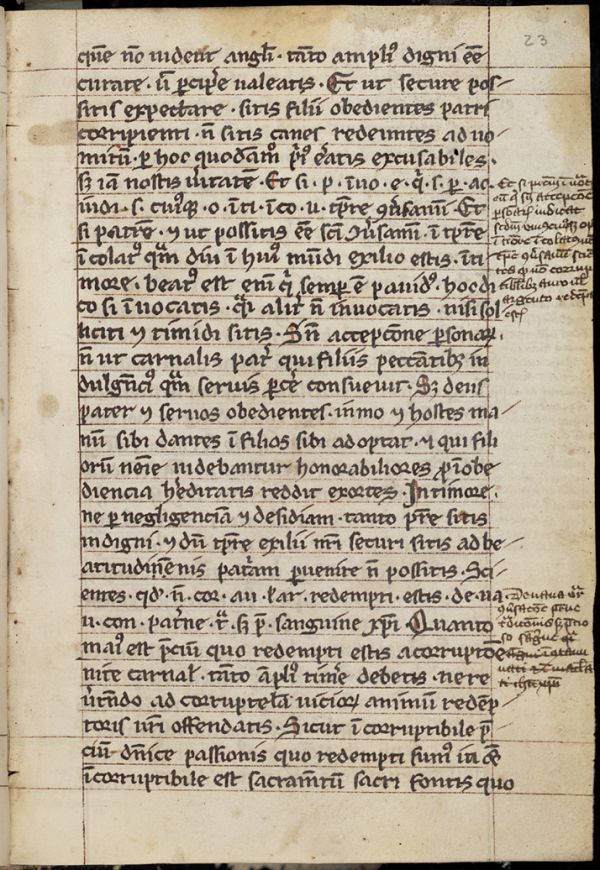 23
que nō uident angli · tāto ampliꝰ digni eē
curate · ut ꝑcipe ualeatis · Et ut secure pos-
sitis expectare · sitis filii obedientes patri
corripienti · ñ sitis canes redeuntes ad uo-
mitū · ꝑ hoc quodāmō priꝰ eratis excusabiles ·
sꝫ iā nostis ueritatē · Et si · p · iuo · e · q̇ · s · ꝑ · ac ·
iudi · s · cuiꝰq · o · īti · ī co · u · tꝑre ꝯuersamī Et
si patrē · ⁊ ut possitis eē sc̄i ꝯuersamī · ī tꝑre
īcolatꝰ qm̄ diu ī huiꝰ mūdi exilio estis · īti-
more · beatꝰ est enī qi semꝑ ē pauidꝰ · hoc di
co si īuocatis · quia aliter ñ inuocatis · nisi sol
liciti ⁊ timidi sitis · Sñ accepcōne personaꝝ
ñ ut carnalis pater qui filiis peccātibꝫ in
dulgēciꝰ qm̄ seruis ꝑcere consueuit · Sꝫ deus
pater ⁊ seruos obedientes · inmo ⁊ hostes ma-
nū sibi dantes ī filios sibi adoptat · ⁊ qui fili
orū nōīe uidebantur honorabiliores ꝓ īobe
diencia hereditatis reddit exortes · In timore ·
ne ꝑ negligenciā ⁊ desidiam · tanto patre sitis
indigni · ⁊ dū tꝑre exilii nr̄i securi sitis ad be-
atitudinē enis patriam ꝑuenire ñ possitis · Sci-
entes · qd̓ · ñ · cor · au · l ar · redempti · estis · de · ua
u · con · paterne · t̄ · sꝫ p̄ · sanguine xp̄i · Quanto
maiꝰ est p̄ciū quo redempti estis a corruptōe
uite carnal · tāto āpliꝰ timere debetis · ne re
uertēdo ad corruptelā uicioꝝ animum redēp
toris ur̄i offendatis · Sicut ī corruptibile p̄
ciū dn̄ice passionis quo redempti sumꝰ ita et
īcorruptibile est sacramētū sacri fontis quo
Et si patrem īuocatis
eū qi sn̄ acceptōe
personaꝝ iudicat
scd̄m uniꝰcuiusqꝫ opꝰ
ī timore īcolatꝰ ur̄i
tꝑe ꝯuersamī scien
tes quod ñ corrup
tibilibꝫ auro uel
argento redempti
estis
De uana ur̄a
ꝯuersacōe paterne
tradiciōnis sꝫ p̄cio
so sāguine quasi
agni īcōtami
nati ⁊ īmacula
ti christi xp̄i